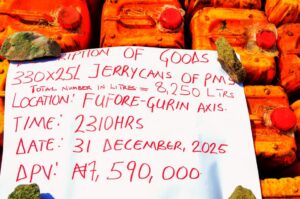 DESCRIPTION OF GOODS
330X25L JERRYCANS OF PMS
TOTAL NUMBER IN LITRES = 8,250 LTRS
LOCATION: FUFORE-GURIN AXIS.
TIME: 2310HRS
DATE: 31 DECEMBER, 2025
DPV: ₦7,590,000